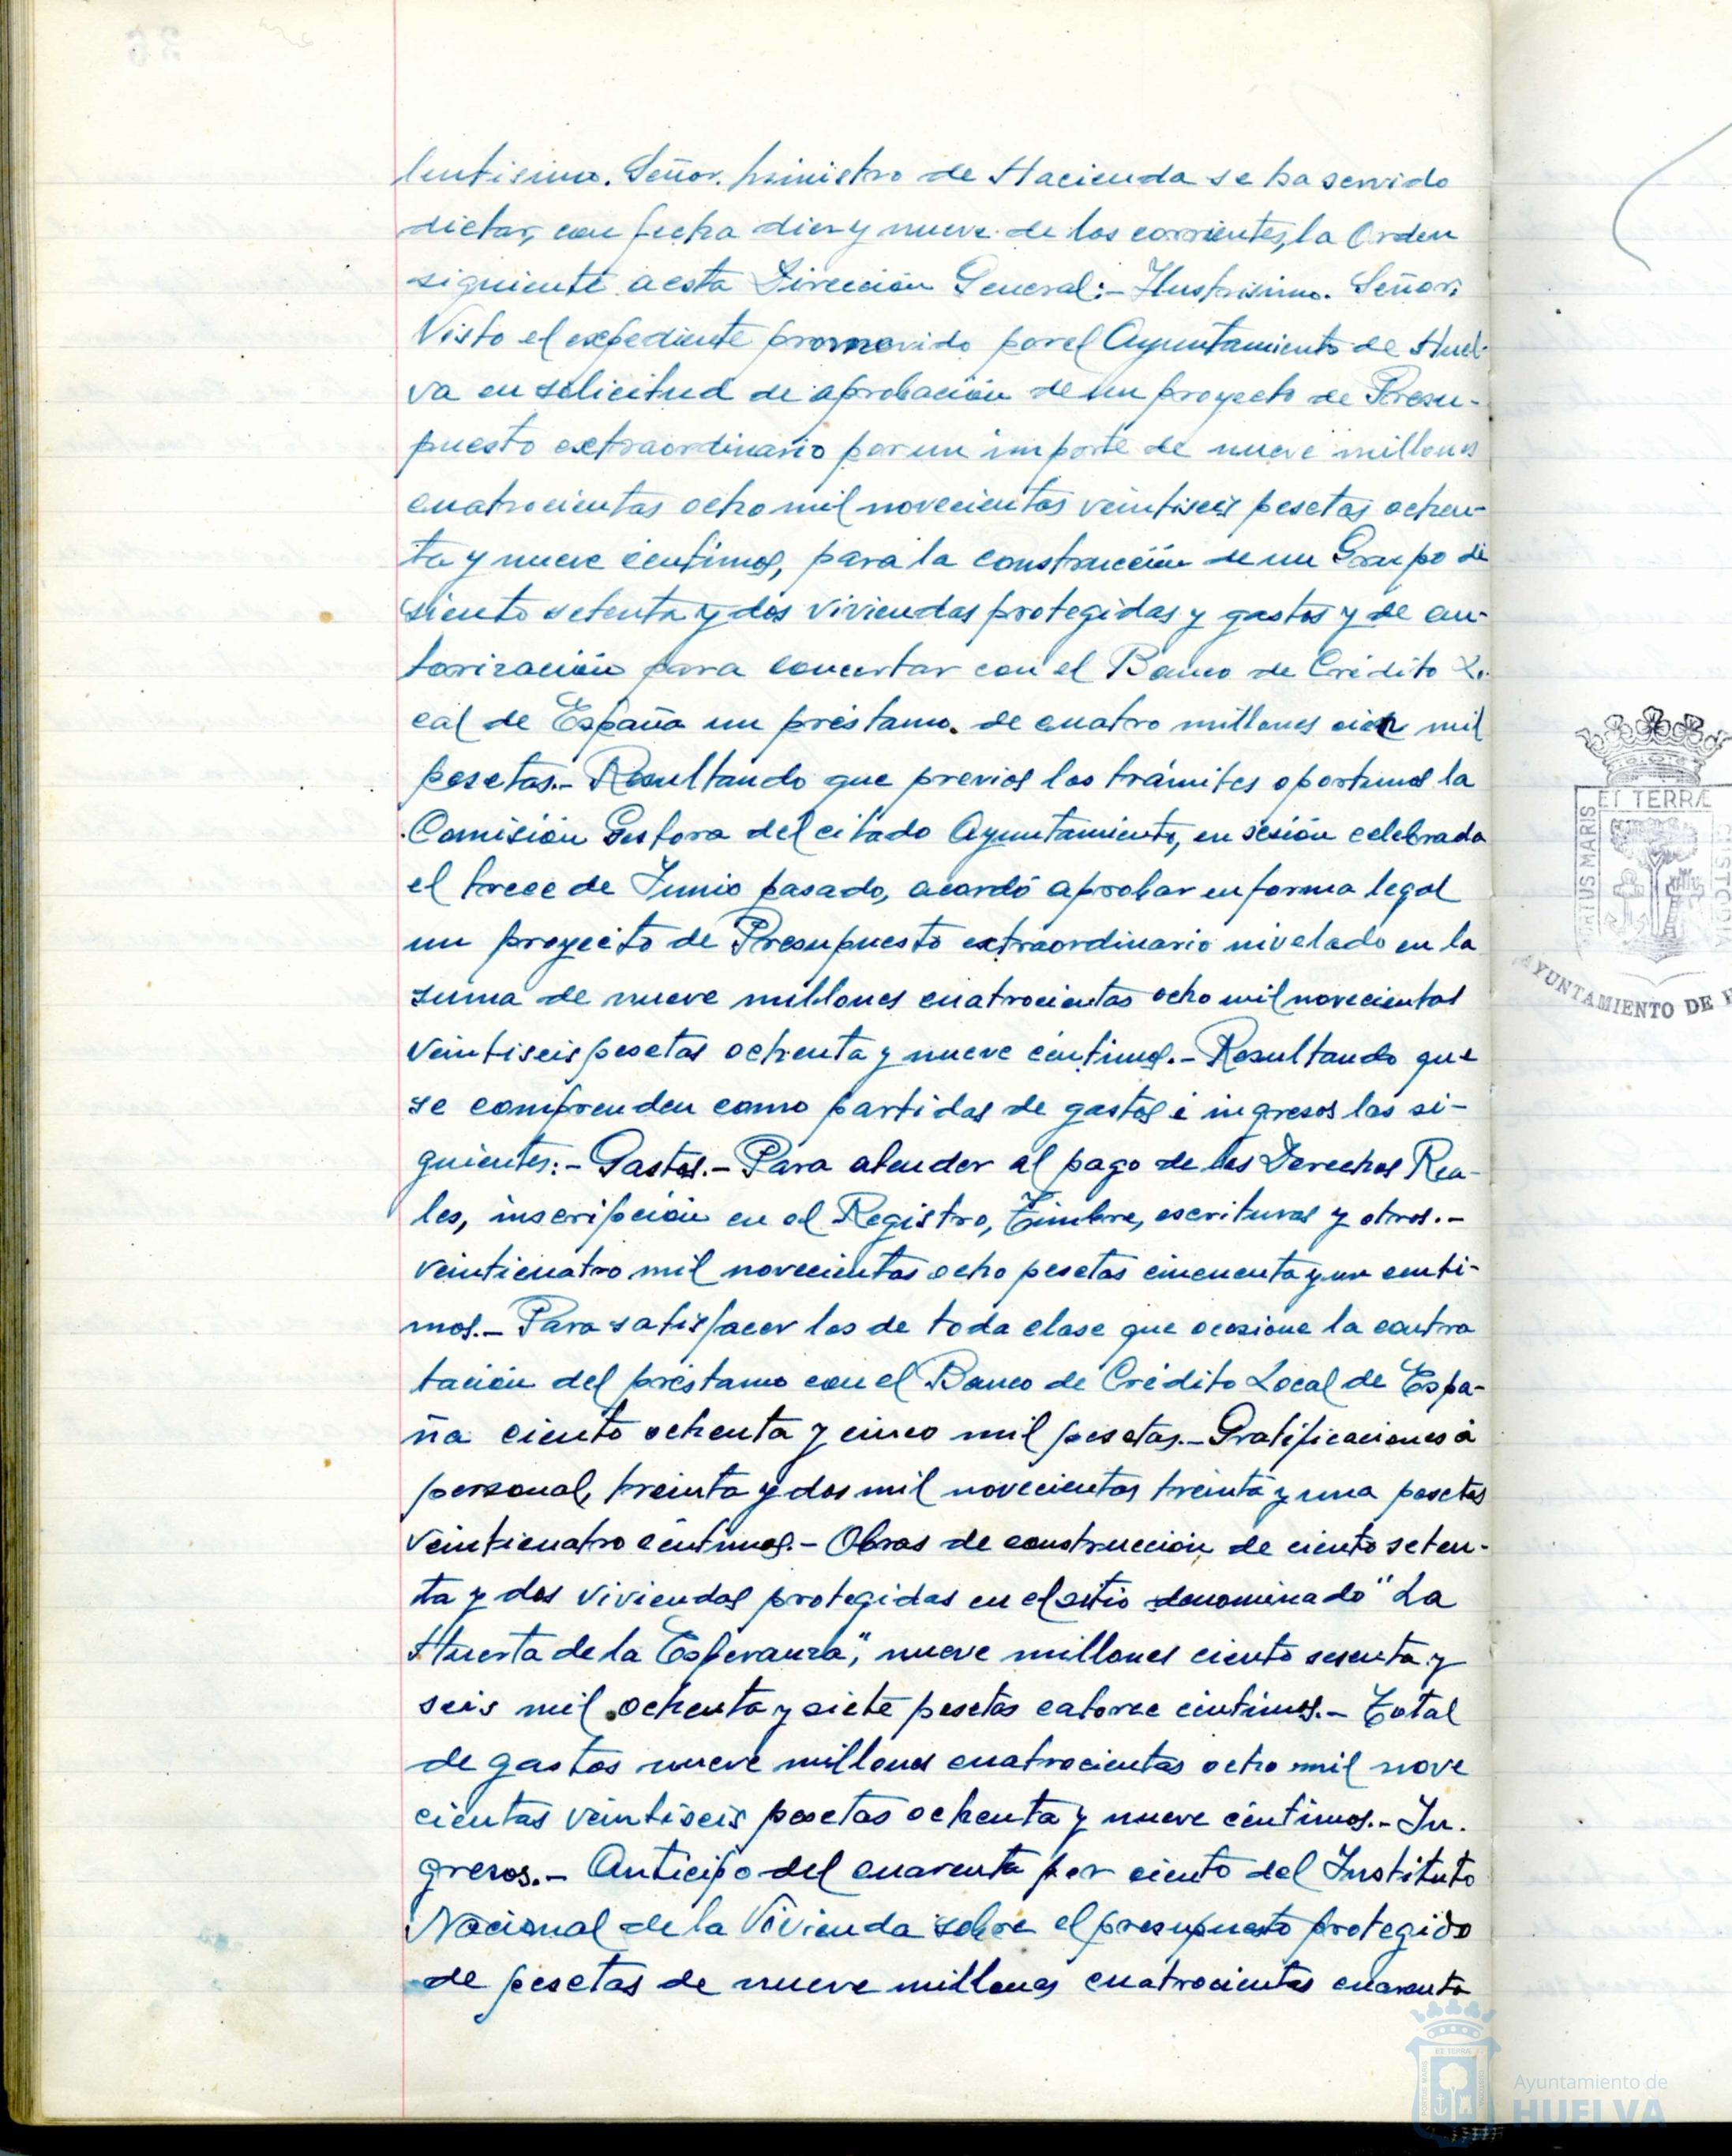 lentísimo. Señor. Ministro de Hacienda se ha servido
dictar, con fecha diez y nueve de los corrientes, la Orden
siguiente a esta Dirección General:- Ilustrísimo. Señor:
Visto el expediente promovido por el Ayuntamiento de Huel-
va en solicitud de aprobación de un proyecto de Presu-
puesto extraordinario por un importe de nueve millones
cuatrocientas ocho mil novecientas veintiseis pesetas ochen-
ta y nueve céntimos, para la construcción de un Grupo de
siento setenta y dos viviendas protegidas y gastos y de au-
torización para concertar con el Banco de Crédito Lo-
cal de España un préstamo. de cuatro millones cien mil
pesetas.- Resultando que previos los trámites oportunos la
Comisión Gestora del citado Ayuntamiento, en sesión celebrada
el trece de Junio pasado, acordó aprobar en forma legal
un proyecto de Presupuesto extraordinario nivelado en la
suma de nueve millones cuatrocientas ocho mil novecientas
veintiseis pesetas ochenta y nueve céntimos.- Resultando que
se comprenden como partidas de gastos é ingresos las si-
guientes:- Gastos.- Para atender al pago de los Derechos Rea-
les, inscripción en el Registro, Timbre, escrituras y otros.-
veinticuatro mil novecientas ocho pesetas cincuenta y un centi-
mos.- Para satisfacer los de toda clase que ocasione la contra
tación del préstamo con el Banco de Crédito Local de Espa-
ña ciento ochenta y cinco mil pesetas.- Gratificaciones á
personal, treinta y dos mil novecientas treinta y una pesetas
veinticuatro céntimos.- Obras de construcción de ciento seten-
ta y dos viviendas protegidas en el sitio denominado "La
Huerta de la Esperanza", nueve millones ciento sesenta y
seis mil ochenta y siete pesetas catorce céntimos.- Total
de gastos nueve millones cuatrocientas ocho mil nove
cientas veintiseis pesetas ochenta y nueve céntimos.- In-
gresos.- Anticipo del cuarenta por ciento del Instituto
Nacional de la Vivienda sobre el presupuesto protegido
de pesetas de nueve millones cuatrocientas cuarenta
ET TERRÆ
PORTUS MARIS
CUSTODIA
AYUNTAMIENTO DE H
Ayuntamiento de
HUELVA